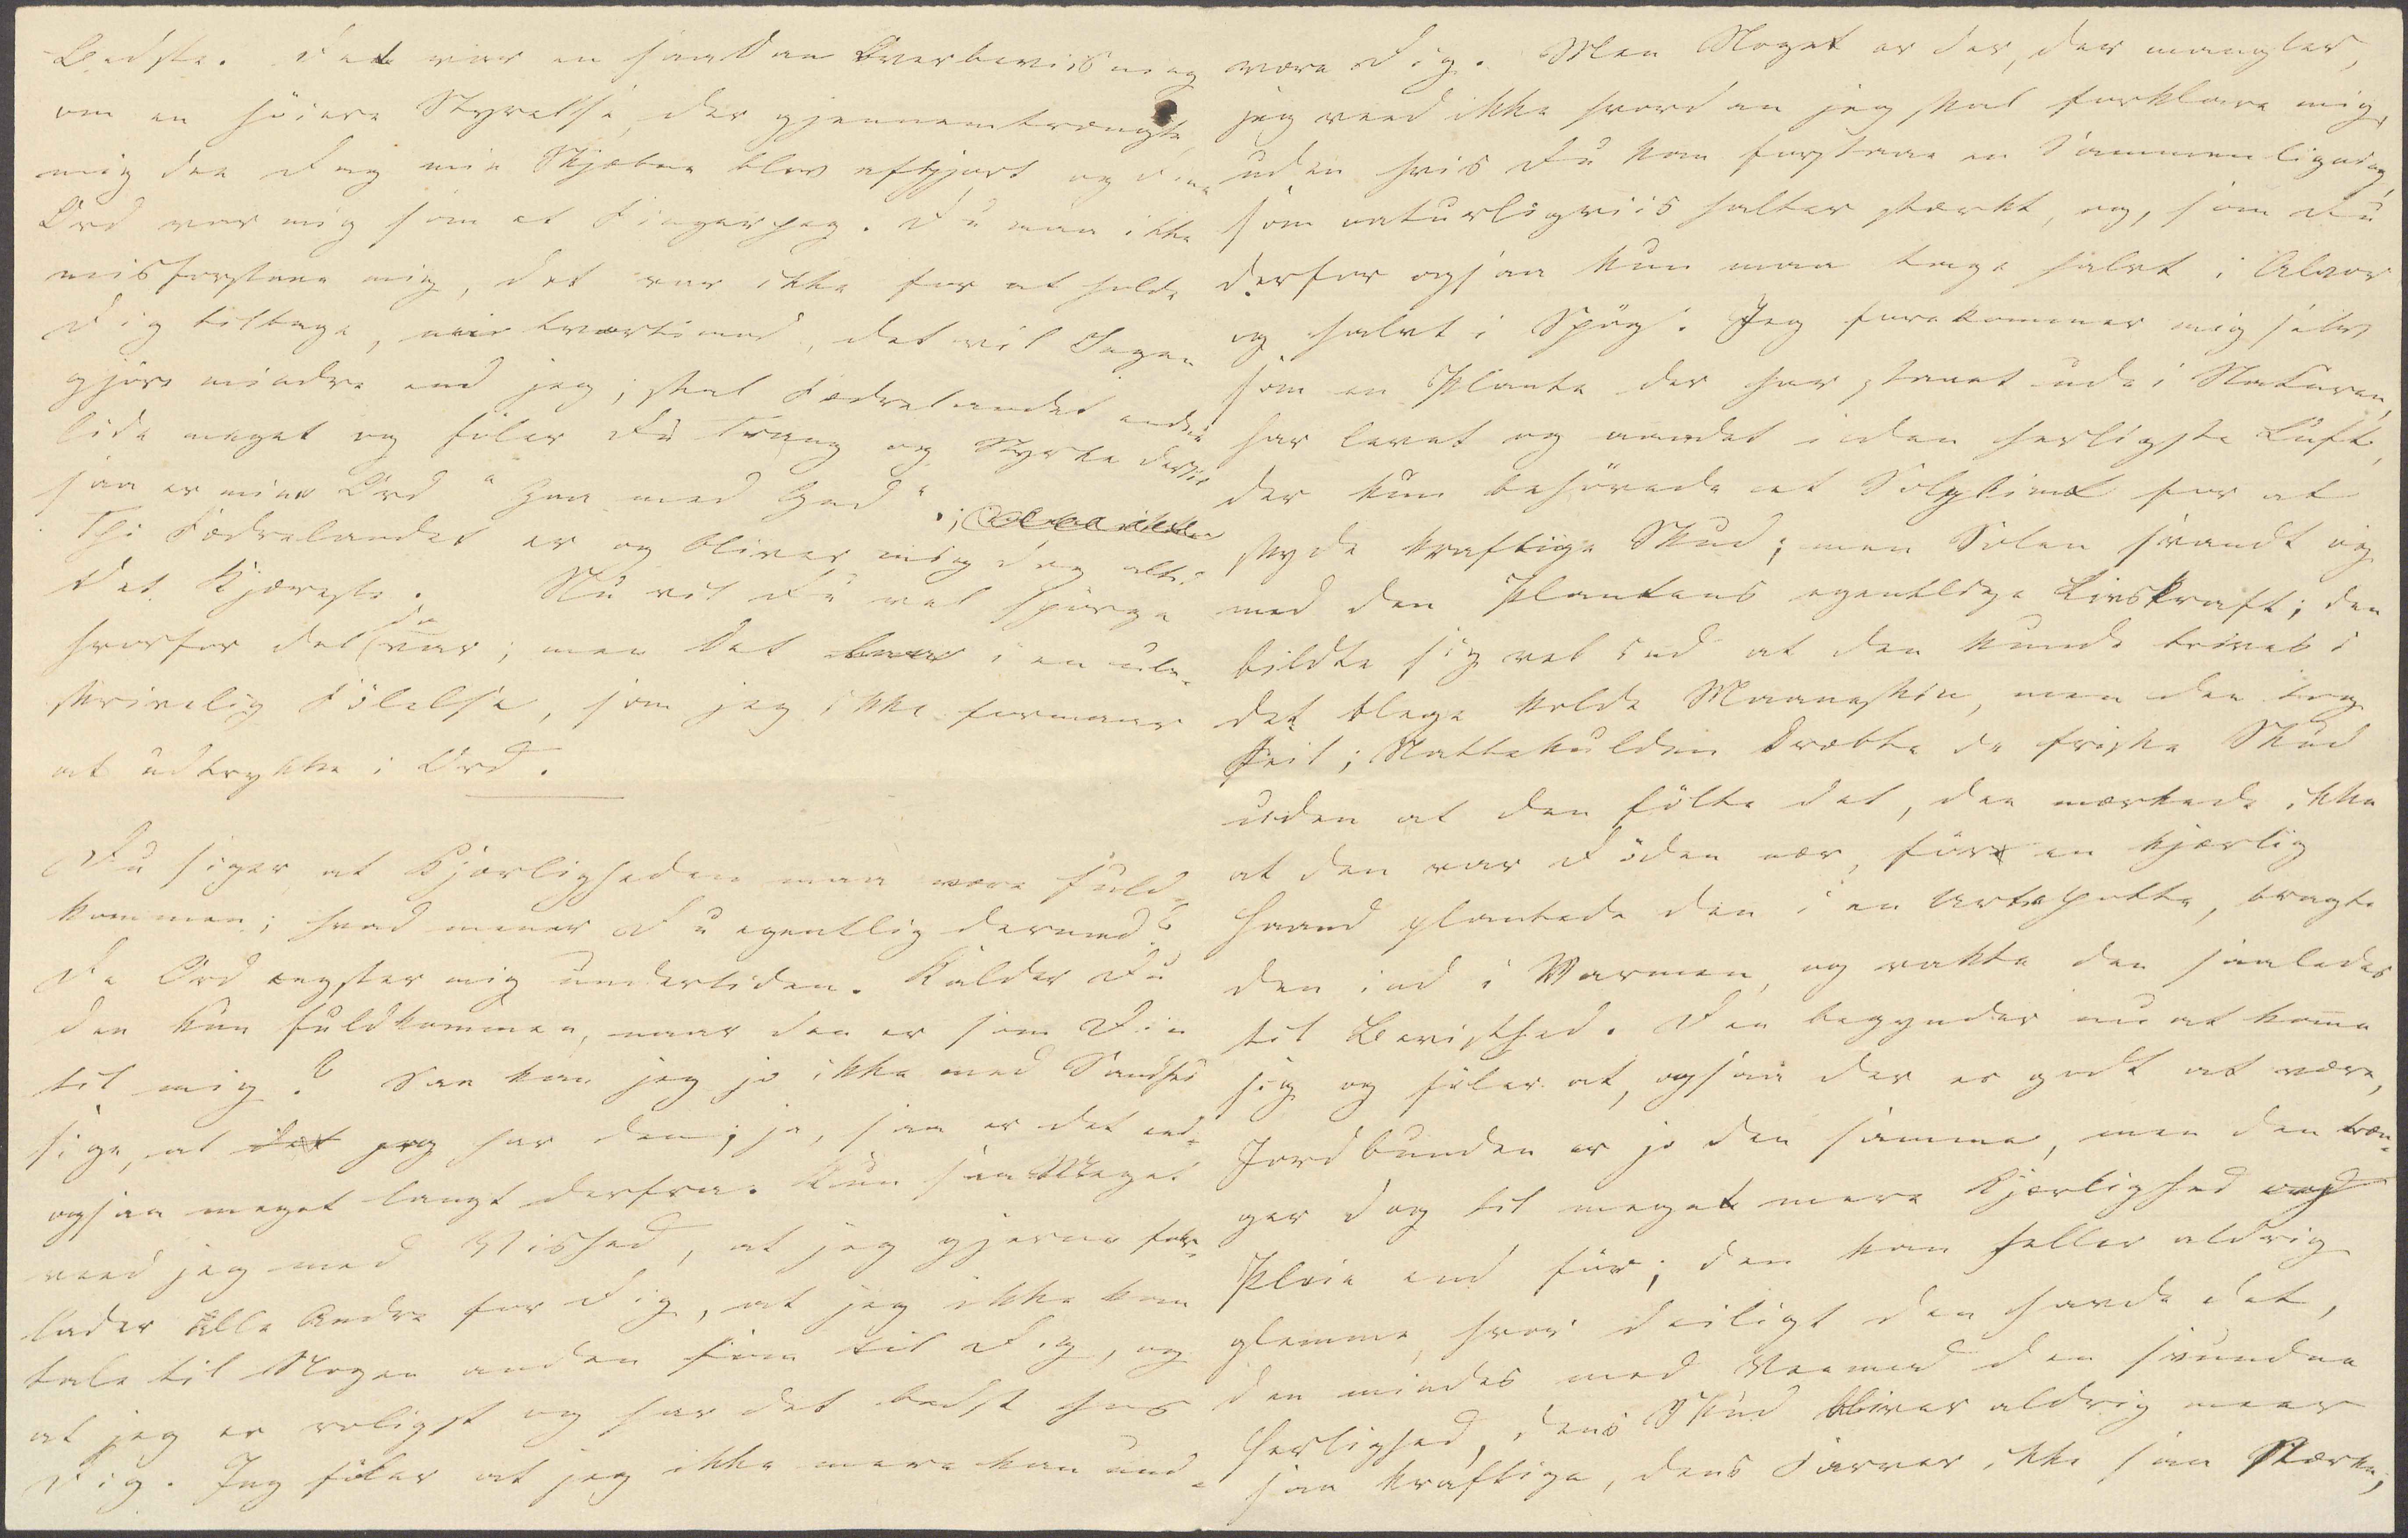 Bedste. Det var en saadan Overbeviisning
om en höiere Styrelse, der gjennemtrængte
mig den Dag min Skjæbne blev afgjort og dine
Ord var mig som et Fingerpeg. Du maa ikke
misforstaae mig, det var ikke for at holde
Dig tilbage, nei tvertimod, det vil Ingen
gjöre mindre end jeg; skal Fædrelandet endnu
lide meget og föler Du Trang og Styrke dertil
saa er mine Ord "Gaa med Gud";
Thi Fædrelandet er og bliver mig dog altid
det Kjæreste. Nu vil Du vel spörge
hvorfor det da var; men det var i en ube-
skrivelig Fölelse, som jeg ikke formaaer
at udtrykke i Ord.
Du siger at Kjærligheden maa være fuld-
kommen; hvad mener Du egentlig dermed?
De Ord ængster mig undertiden. Kalder Du
den kun fuldkommen, naar den er som Din
til mig? Saa kan jeg jo ikke med Sandhed
sige, at det jeg har den; ja, saa er det end-
ogsaa meget langt derfra. Kun saa Meget
veed jeg med Vished, at jeg gjerne for-
lader Alle Andre for Dig, at jeg ikke kan
tale til Nogen anden som til Dig, og
at jeg er roligst og har det bedst hos
Dig. Jeg föler at jeg ikke mere kan und-
være Dig. Men Noget er der, der mangler,
jeg veed ikke hvordan jeg skal forklare mig,
uden hvis Du kan forstaae en Sammenligning,
som naturligviis halter stærkt, og, som Du
derfor ogsaa kun maa tage halvt i Alvor
og halvt i Spög. Jeg forekommer mig selv
som en Plante der har staaet ude i Naturen,
har levet og aandet i den herligste Luft,
der kun behövede et Solglimt for at
skyde kraftige Skud; men Solen svandt og
med den Plantens egentlige Livskraft; den
bildte sig vel ind at den kunde trives i
det blege kolde Maaneskin, men den tog
Feil; Nattekulden dræbte de friske Skud
uden at den fölte det, den mærkede ikke
at den var Döden nær, för en kjærlig
Haand plantede den i en Urtepotte, bragte
den ind i Varmen, og vakte den saaledes
til Bevisthed. Den begynder nu at komme
sig og föler at, ogsaa der er godt at være,
Jordbunden er jo den samme, men den træn-
ger dog til meget mere Kjærlighed og
Pleie end för; den kan heller aldrig
glemme, hvor deiligt den havde det,
den mindes med Veemod den svundne
Herlighed, dens Skud bliver aldrig meer
saa kraftige, dens Farver ikke saa stærke,